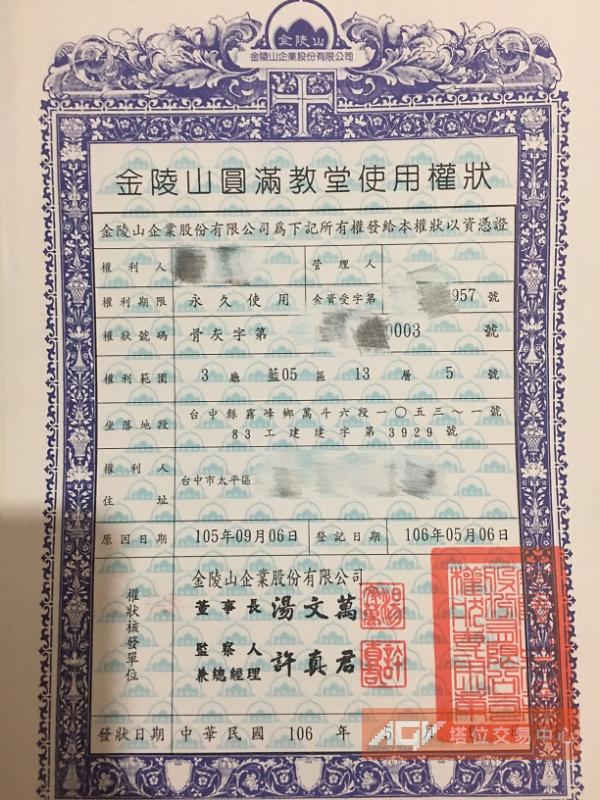 金陵山
金陵山企業股份有限公司
金陵山圓滿教堂使用權狀
金陵山企業股份有限公司為下記所有權發給本權狀以資憑證
權利人 管理人
權利期限 永久使用 金資受字第 957 號
權狀號碼 骨灰字第 0003 號
權利範圍 3 廳 藍05 區 13 層 5 號
坐落地段 台中縣霧峰鄉萬斗六段一〇五三~一號
83 工建建字第 3929 號
權利人住址 台中市太平區
原因日期 105年09月06日 登記日期 106年05月06日
權狀核發單位
金陵山企業股份有限公司
董事長 湯文萬
監察人
兼總經理 許真君
發狀日期 中華民國 106 年
AGK 塔位交易中心